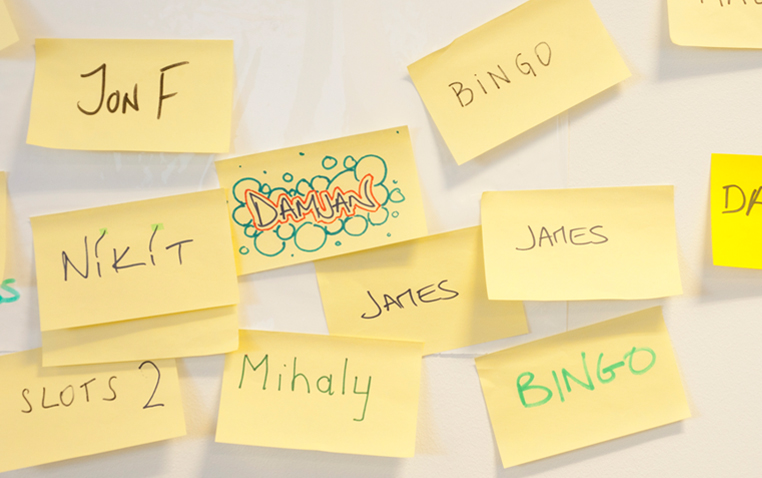 Jon F
BiNGO
DAMJAN
NiKiT
JAMES
JAMES
SLOTS 2
Mihaly
BINGO